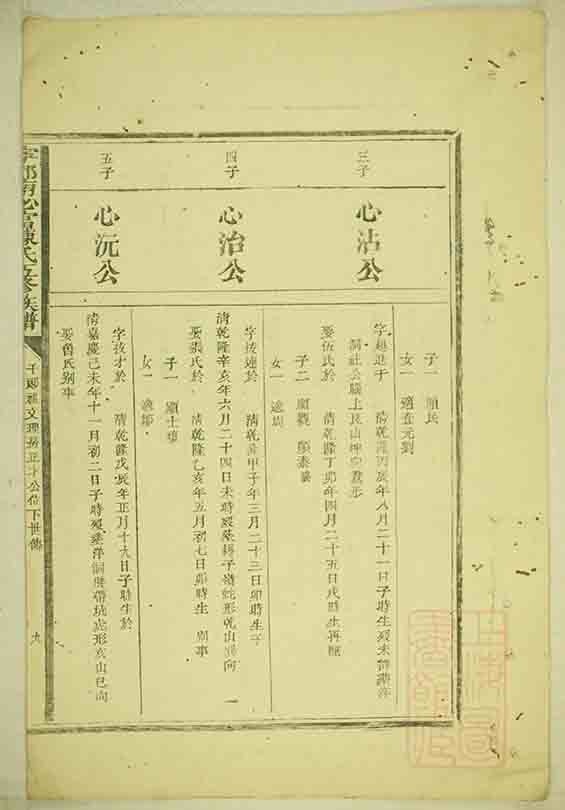 三子
心沾公
子一 顯民
女一 適
字超進于 清乾隆丙辰年八月二十一日子時生歿未詳
公腦上艮山坤向
娶伍氏於 清乾隆丁卯年四月二十五日戌時生再醮
子二 顯 顯泰
女一 適周
四子
心治公
字拔連於 清乾隆甲子年三月二十三日卯時生于
清乾隆辛亥年六月二十四日未時歿葬子嶺蛇形乾山巽向
娶張氏於 清乾隆乙亥年五月初七日卯時生 別事
子一 顯士
女一 適
五子
心沅公
字拔才於 清乾隆戊辰年正月十九日子時生於
清嘉慶己未年十一月初二日子時歿葬洋洞虎形亥山巳向
娶魯氏別事
陳氏五修族譜
千郎祖文理房正才公位下世傳
九
上海圖書館藏